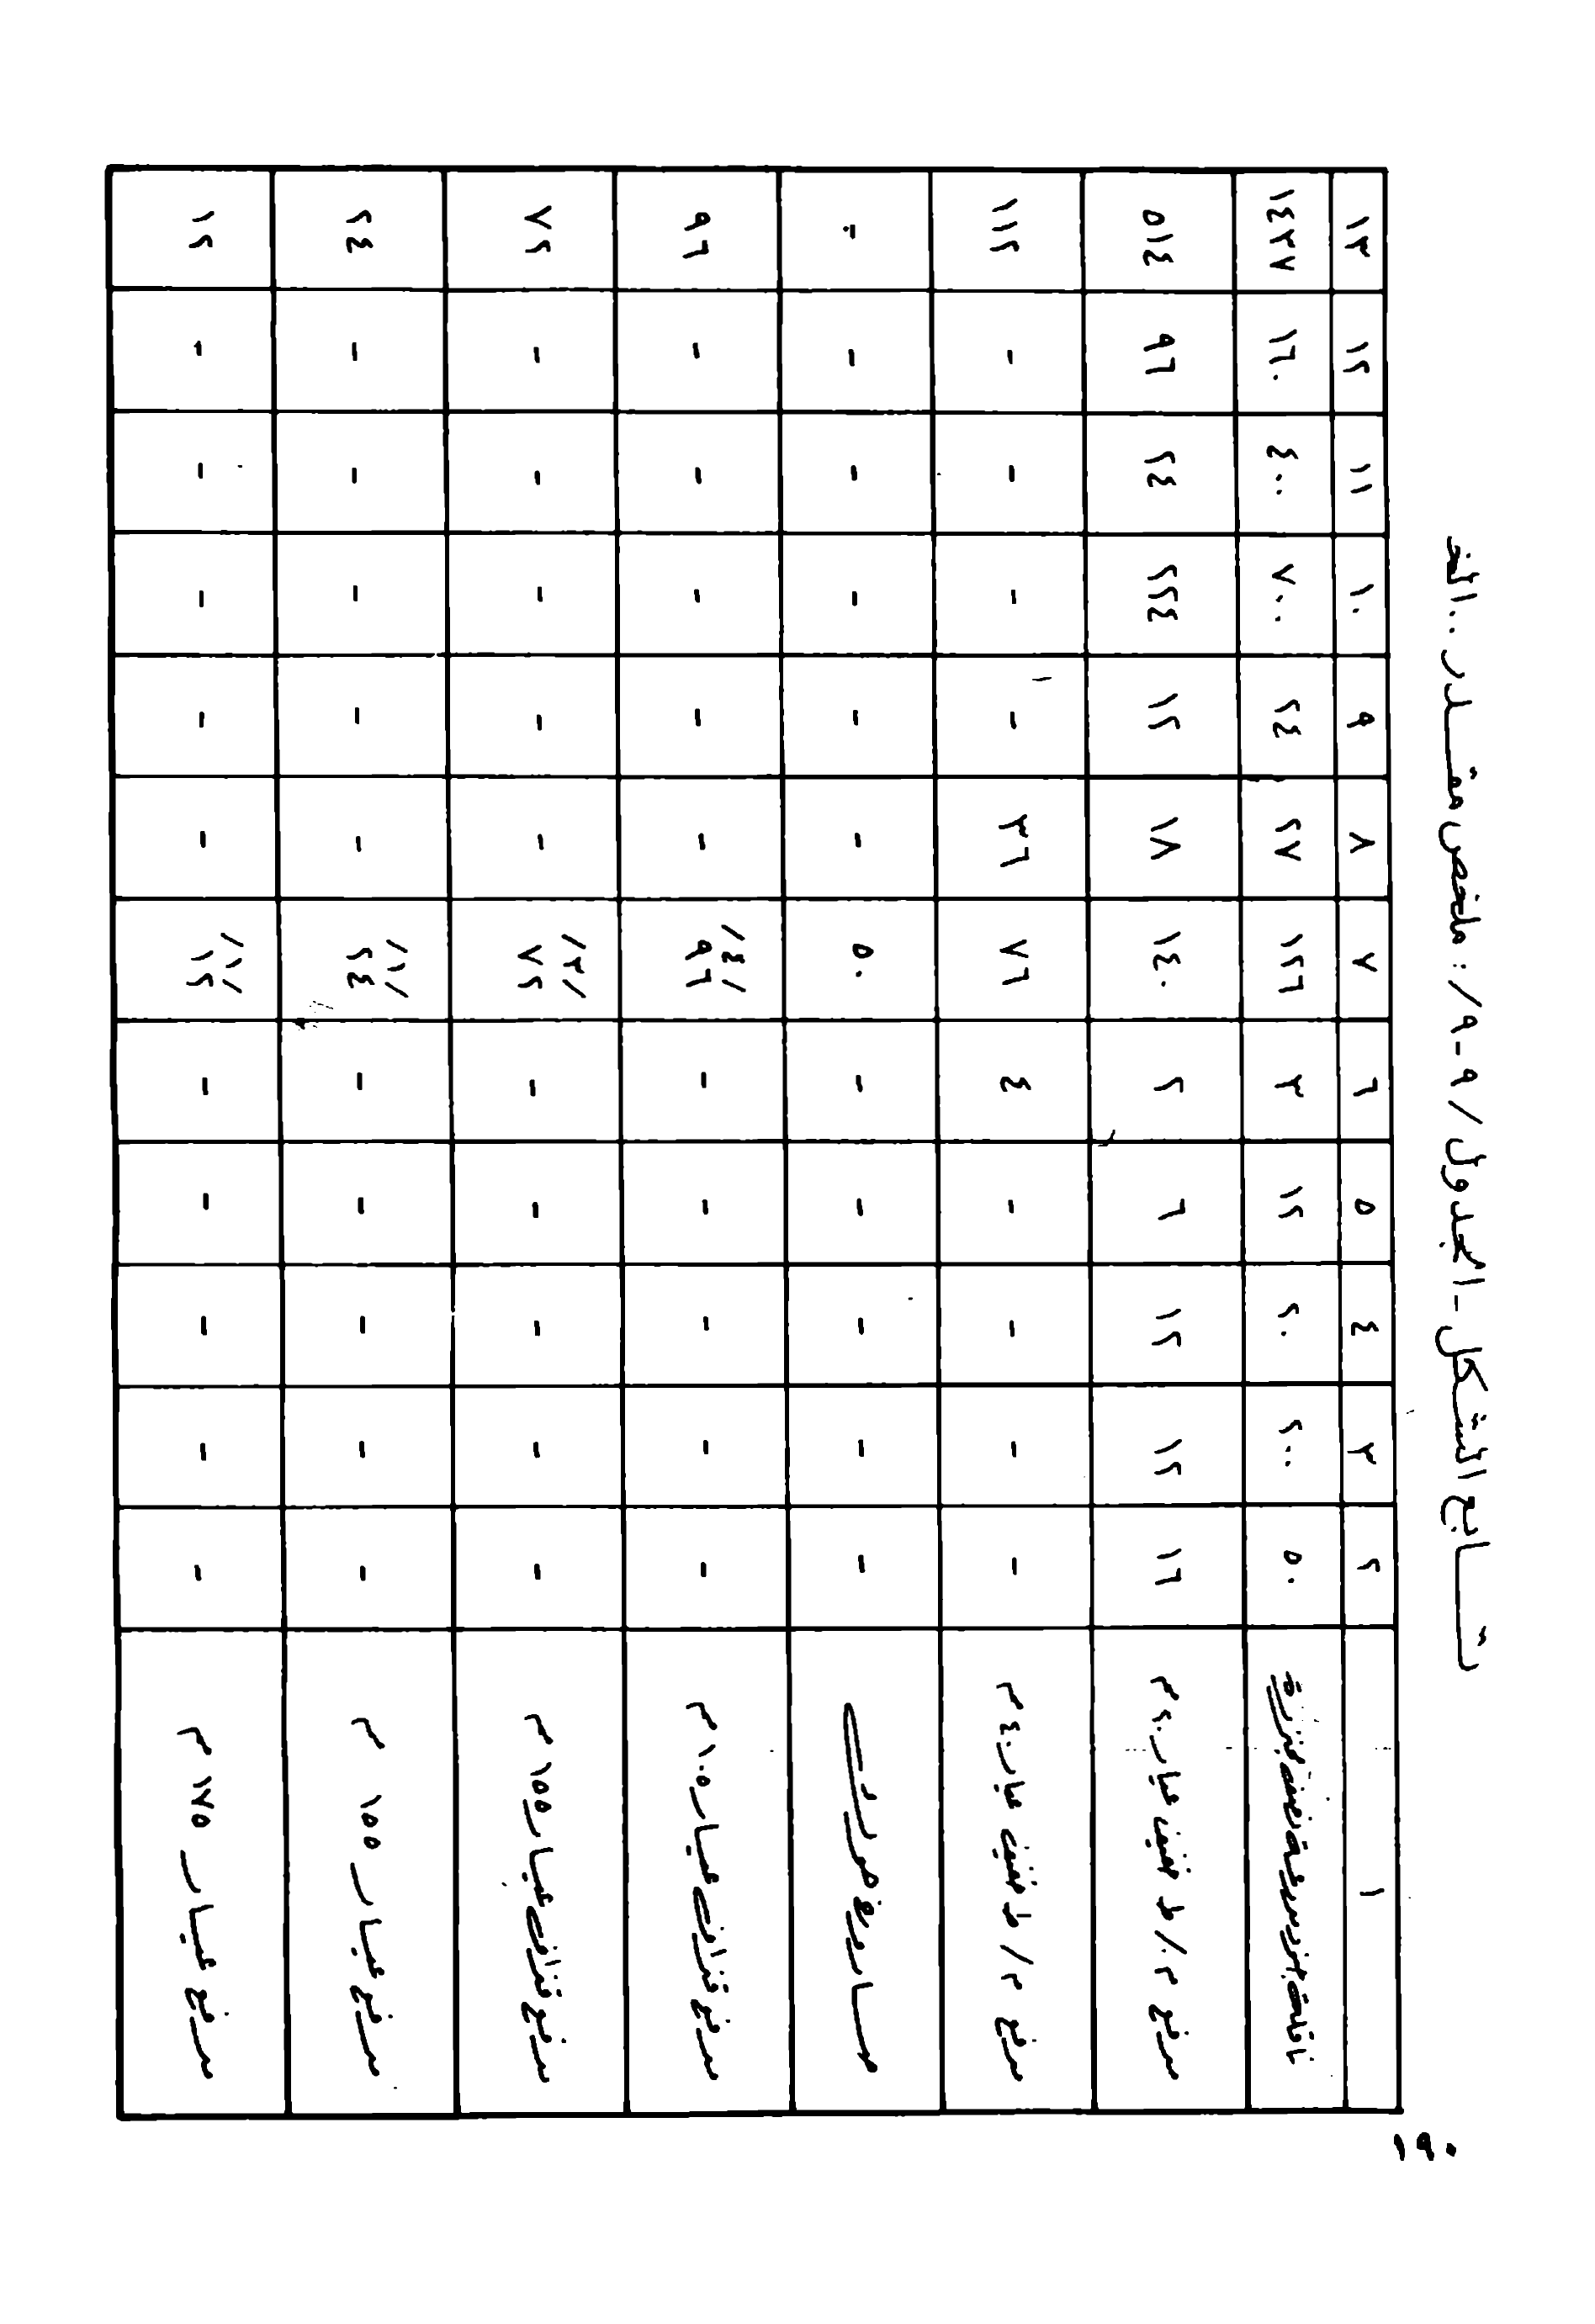 تابع الشكل - الجدول / ٩-٩ / : ملخص مقدر .. الخ
١ ٢ ٣ ٤ ٥ ٦ ٧ ٨ ٩ ١٠ ١١ ١٢ ١٣
ناقلة جند مدرعة نصف مجنزرة ٥٠ ٢٠٠ ٢٠ ١٢ ٣ ١٢٦ ٢٧ ٢٤ ٧٠٠ ٤٠٠ ١٦٠ ١٤٣٧
مدفع م / ط خفيف عيار ٢٠ م ١٦ ١٢ ١٢ ٦ ٢ ١٤٠ ١٨ ١٢ ٢٢٤ ٢٤ ٩٦ ٥١٤
مدفع م / ط خفيف عيار ٤٠ م - - - - ٤ ٧٦ ٣٦ - - - - ١١٢
صاروخ - - - - - ٥٠ - - - - -
مدفع قذاف عيار ١٠٥ م - - - - - /٤/ ٩٦ - - - - - ٩٦
مدفع قذاف عيار ١٥٥ م - - - - - /٣/ ٧٢ - - - - - ٧٢
مدفع عيار ١٥٥ م - - - - - /١/ ٢٤ - - - - - ٢٤
مدفع عيار ١٧٥ م - - - - - /١/ ١٢ - - - - - ١٢
١٩٠